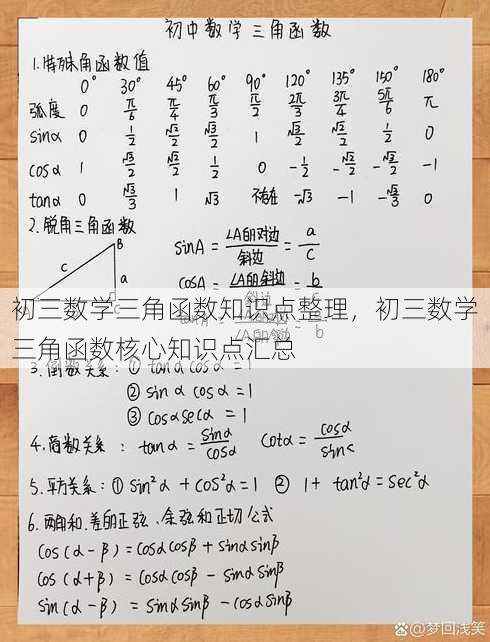 初中数学三角函数
1.特殊角函数值
0° 30° 45° 60° 90° 120° 135° 150° 180°
弧度 0 π/6 π/4 π/3 π/2 2π/3 3π/4 5π/6 π
sinα 0 1/2 √2/2 √3/2 1 √3/2 √2/2 1/2 0
cosα 1 √3/2 √2/2 1/2 0 -1/2 -√2/2 -√3/2 -1
tanα 0 √3/3 1 √3 不存在 -√3 -1 -√3/3 0
2.锐角三角函数
B
c
a
sinA = ∠A的对边/斜边 = a/c
cosA = ∠A的斜邻/斜边 = b
初三数学三角函数知识点整理，初三数学
三角函数核心知识点汇总
b
3.倒数关系：① tanα cosα = 1
② sinα cosα = 1
③ cosα secα = 1
4.商数关系：tanα = sinα/cosα cotα = cosα/sinα
5.平方关系：① sin²α + cos²α = 1 ② 1 + tan²α = sec²α
6.两角和、差的正弦、余弦和正切公式
cos(α-β) = cosα cosβ + sinα sinβ
cos(α+β) = cosα cosβ - sinα sinβ
sin(α-β) = sinα sinβ - cosα sinβ
@梦回浅笑